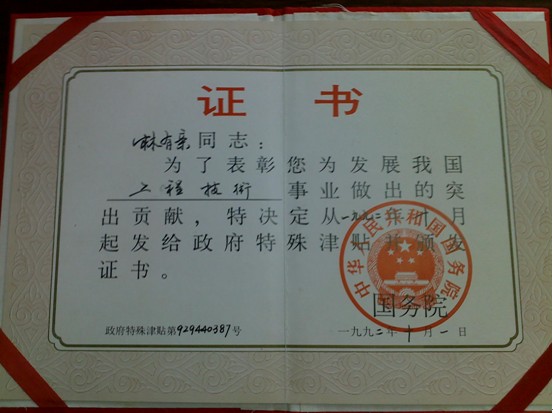 证书
麻有亲同志：
为了表彰您为发展我国
工程技術事业做出的突
出贡献，特决定从一九九二年十月
起发给政府特殊津贴并颁发
证书。
中华人民共和国国务院
国务院
政府特殊津贴第929440387号
一九九二年十月一日